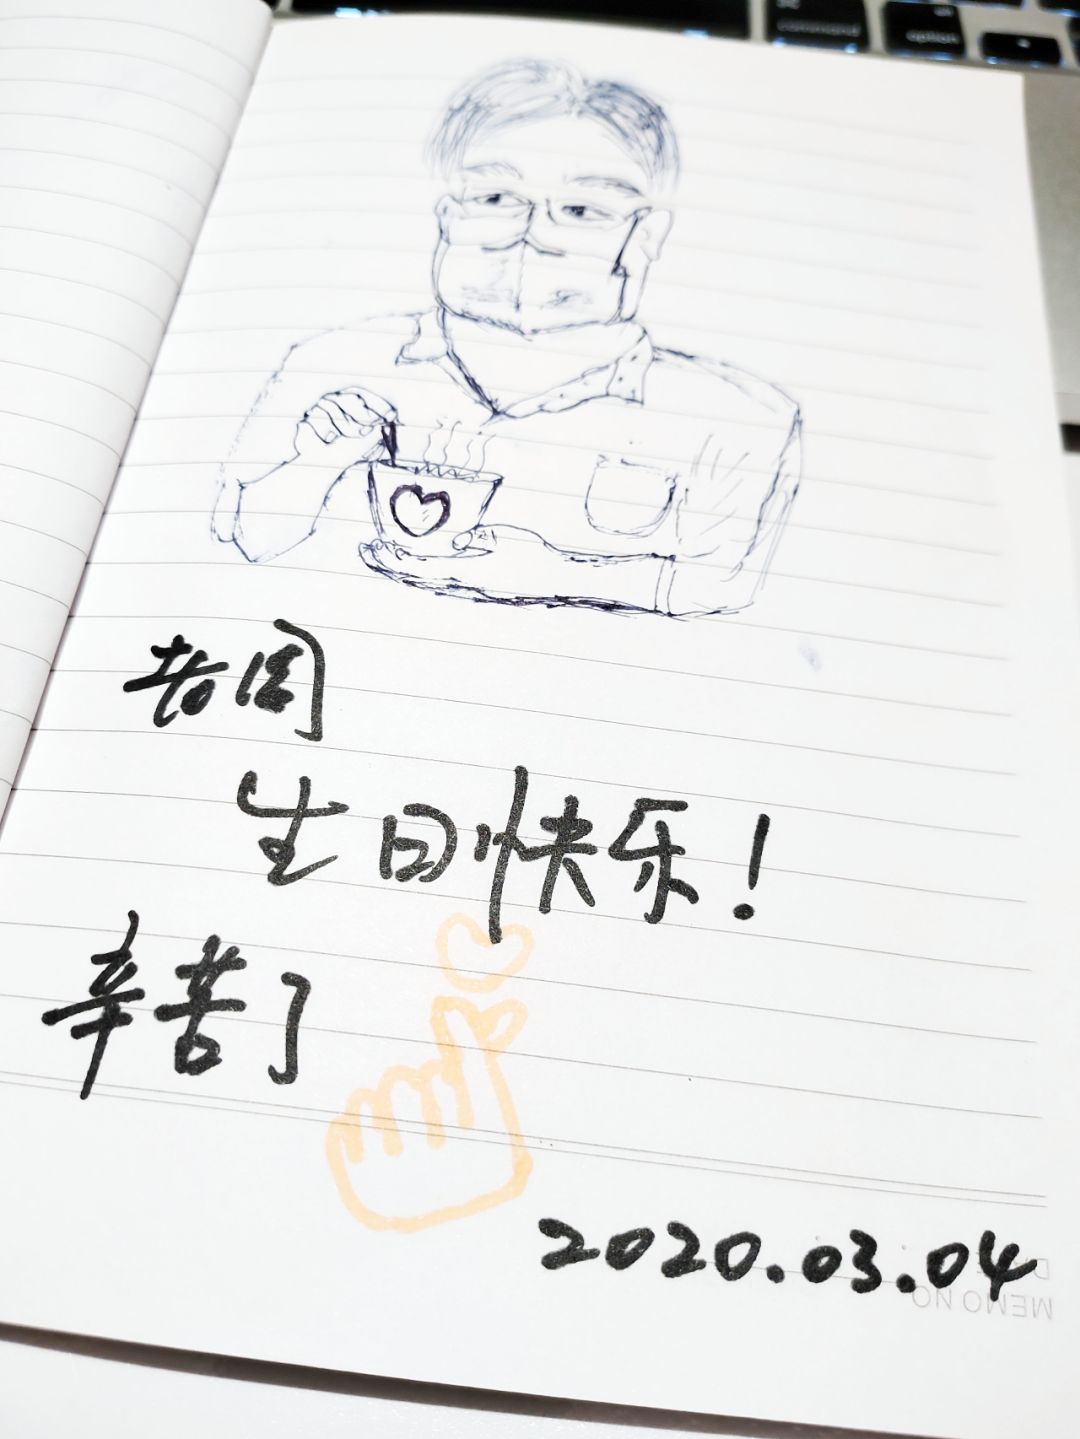 command
option
老周
生日快乐!
辛苦了
2020.03.04
MEMO NO